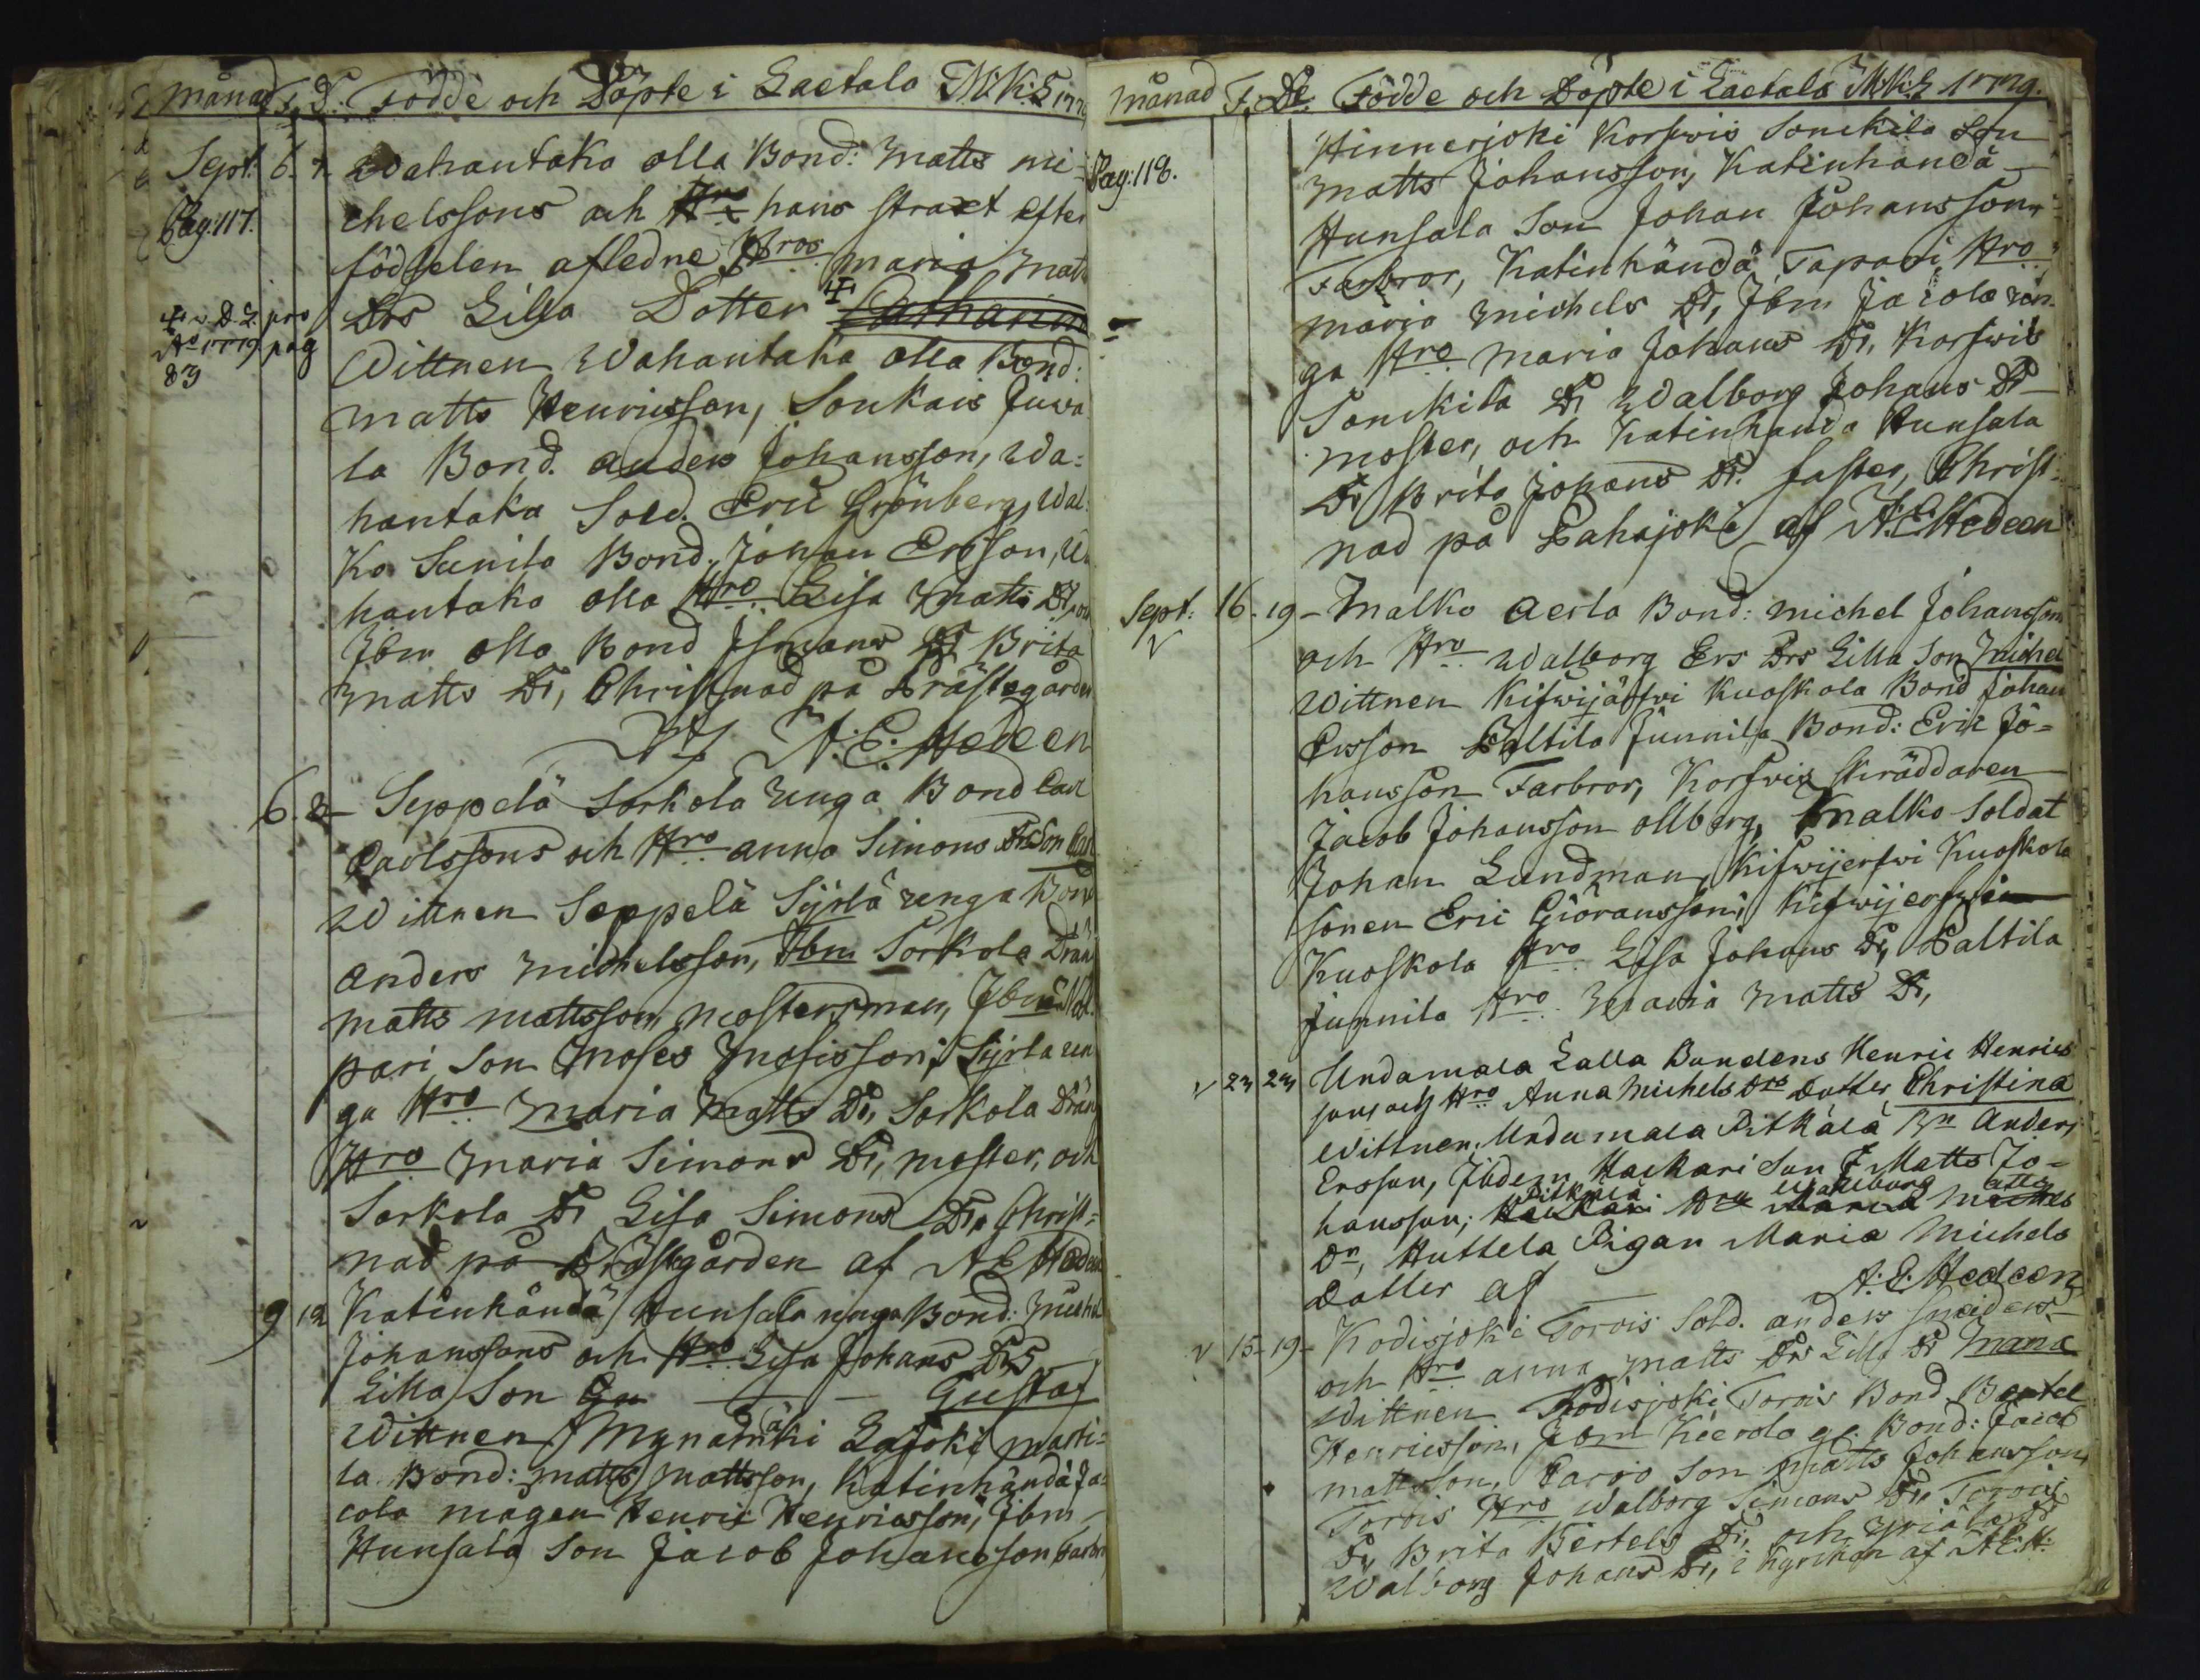 Månad F. D. Födde och Döpte i Laetala M:K:S 177
Sept. 6. 7. Wahantaka olla Bond: Matts Mi-
Pag: 117.
chelssons och hans straxt efter
födslelen afledne Hros Maria Matts
Drs Lilla Dotter ‡ Catharina
‡ D. S. pro
Ao 1779 pag
83
Wittnen Wahantaka olla Bond:
Matts Henricsson, Soukais Juwa
la Bond. Anders Johansson, Wa=
hantaka Sold. Eric Grönberg, Wal
ko Sunila Bond. Johan Ersson, Wa
hantaka olla Hro Lisa Matts Dr, och
Ibm olla Bond Ismans Dr Brita
Matts Dr, Christnad på Prästegården
af A. E. Hedeen
6. 8 - Seppelä Sorkola unga Bond Carl
Carlssons och Hro Anna Simons Drs Son Carl
Wittnen Seppelä Sÿrlä unga Bond
Anders Michelsson, Ibm Sorkola Dräng
Matts Mattsson Mosters man, Ibm
pari Son Moses Mosisson, Sÿrla un
ga Hro Maria Matts Dr, Sorkola Dräng
Hro Maria Simons Dr, moster, och
Sorkola Dr Lisa Simons Dr, Christ=
nad på Prästgården af A E Hedeen
9 12 Katinhändä Hunsala unga Bond: Michel
Johanssons och Hro Lisa Johans Drs
Lilla Son Gu — — Gustaf
Wittnen Mynamäki Lajoki Marti=
la Bond: Matts Mattsson, Katinhändä Ja=
cola mågen Henric Henricsson, Ibm
Hunsala Son Jacob Johansson Farbror
Månad F. De Födde och Döpte i Laetala M:K:S 1779.
Pag: 118.
Hinnerjoki Korswis Sonckila Son
Matts Johansson, Katinhändä
Hunsala Son Johan Johansson
Farbror, Katinhändä Tapani Hro
Maria Michels Dr, Ibm Jacola un
ga Hro Maria Johans Dr, Korswis
Sonckila Dr Walborg Johans Dr
moster, och Katinhända Hunsala
Dr Brita Johans Dr. faster, Christ=
nad på Pahajoki af A. E. Hedeen
Sept: 16. 19 - Malko Aerla Bond: Michel Johansson
och Hro Walborg Ers Drs Lilla Son Michel
Wittnen Kifwijärfwi Kuoskola Bond Johan
Ersson Paltila Junnila Bond: Eric Jo=
hansson Farbror, Korswis Skräddaren
Jacob Johansson Ollberg, Malko Soldat
Johan Lundman, Kifwijerfwi Kuoskola
sonen Eric Giöransson, Kifwijerfwi
Kuoskola Hro Lisa Johans Dr, Paltila
Junnila Hro Maria Matts Dr,
v 23 23 Undamala Lalla Bondens Henric Henrics
sons och Hro Anna Michels Drs Dotter Christina
Wittnen, Undamala Pitkälä Bn Anders
Ersson, Ibdem Haukari Son Matts Jo=
hansson; Haukari Pitkälä Hro Maria Wallborg Michels Matts
Dr, Huttela Pigan Maria Michels
Dotter af A: E: Hedeen
v 15-19 - Kodisjoki Torois Sold. Anders Sneiders
och Hro Anna Matts Drs Lilla Dr Maria
Wittnen Kodisjoki Torois Bond Bertel
Henricsson, Ibm Kierola gl. Bond: Jacob
Mattsson, Parvo Son Matts Johansson
Torois Hro Walborg Simons Dr, Torois
Dr, Brita Bertels Dr, och Yriala Dr
Walborg Johans Dr, i Kyrckan af A: E: H: